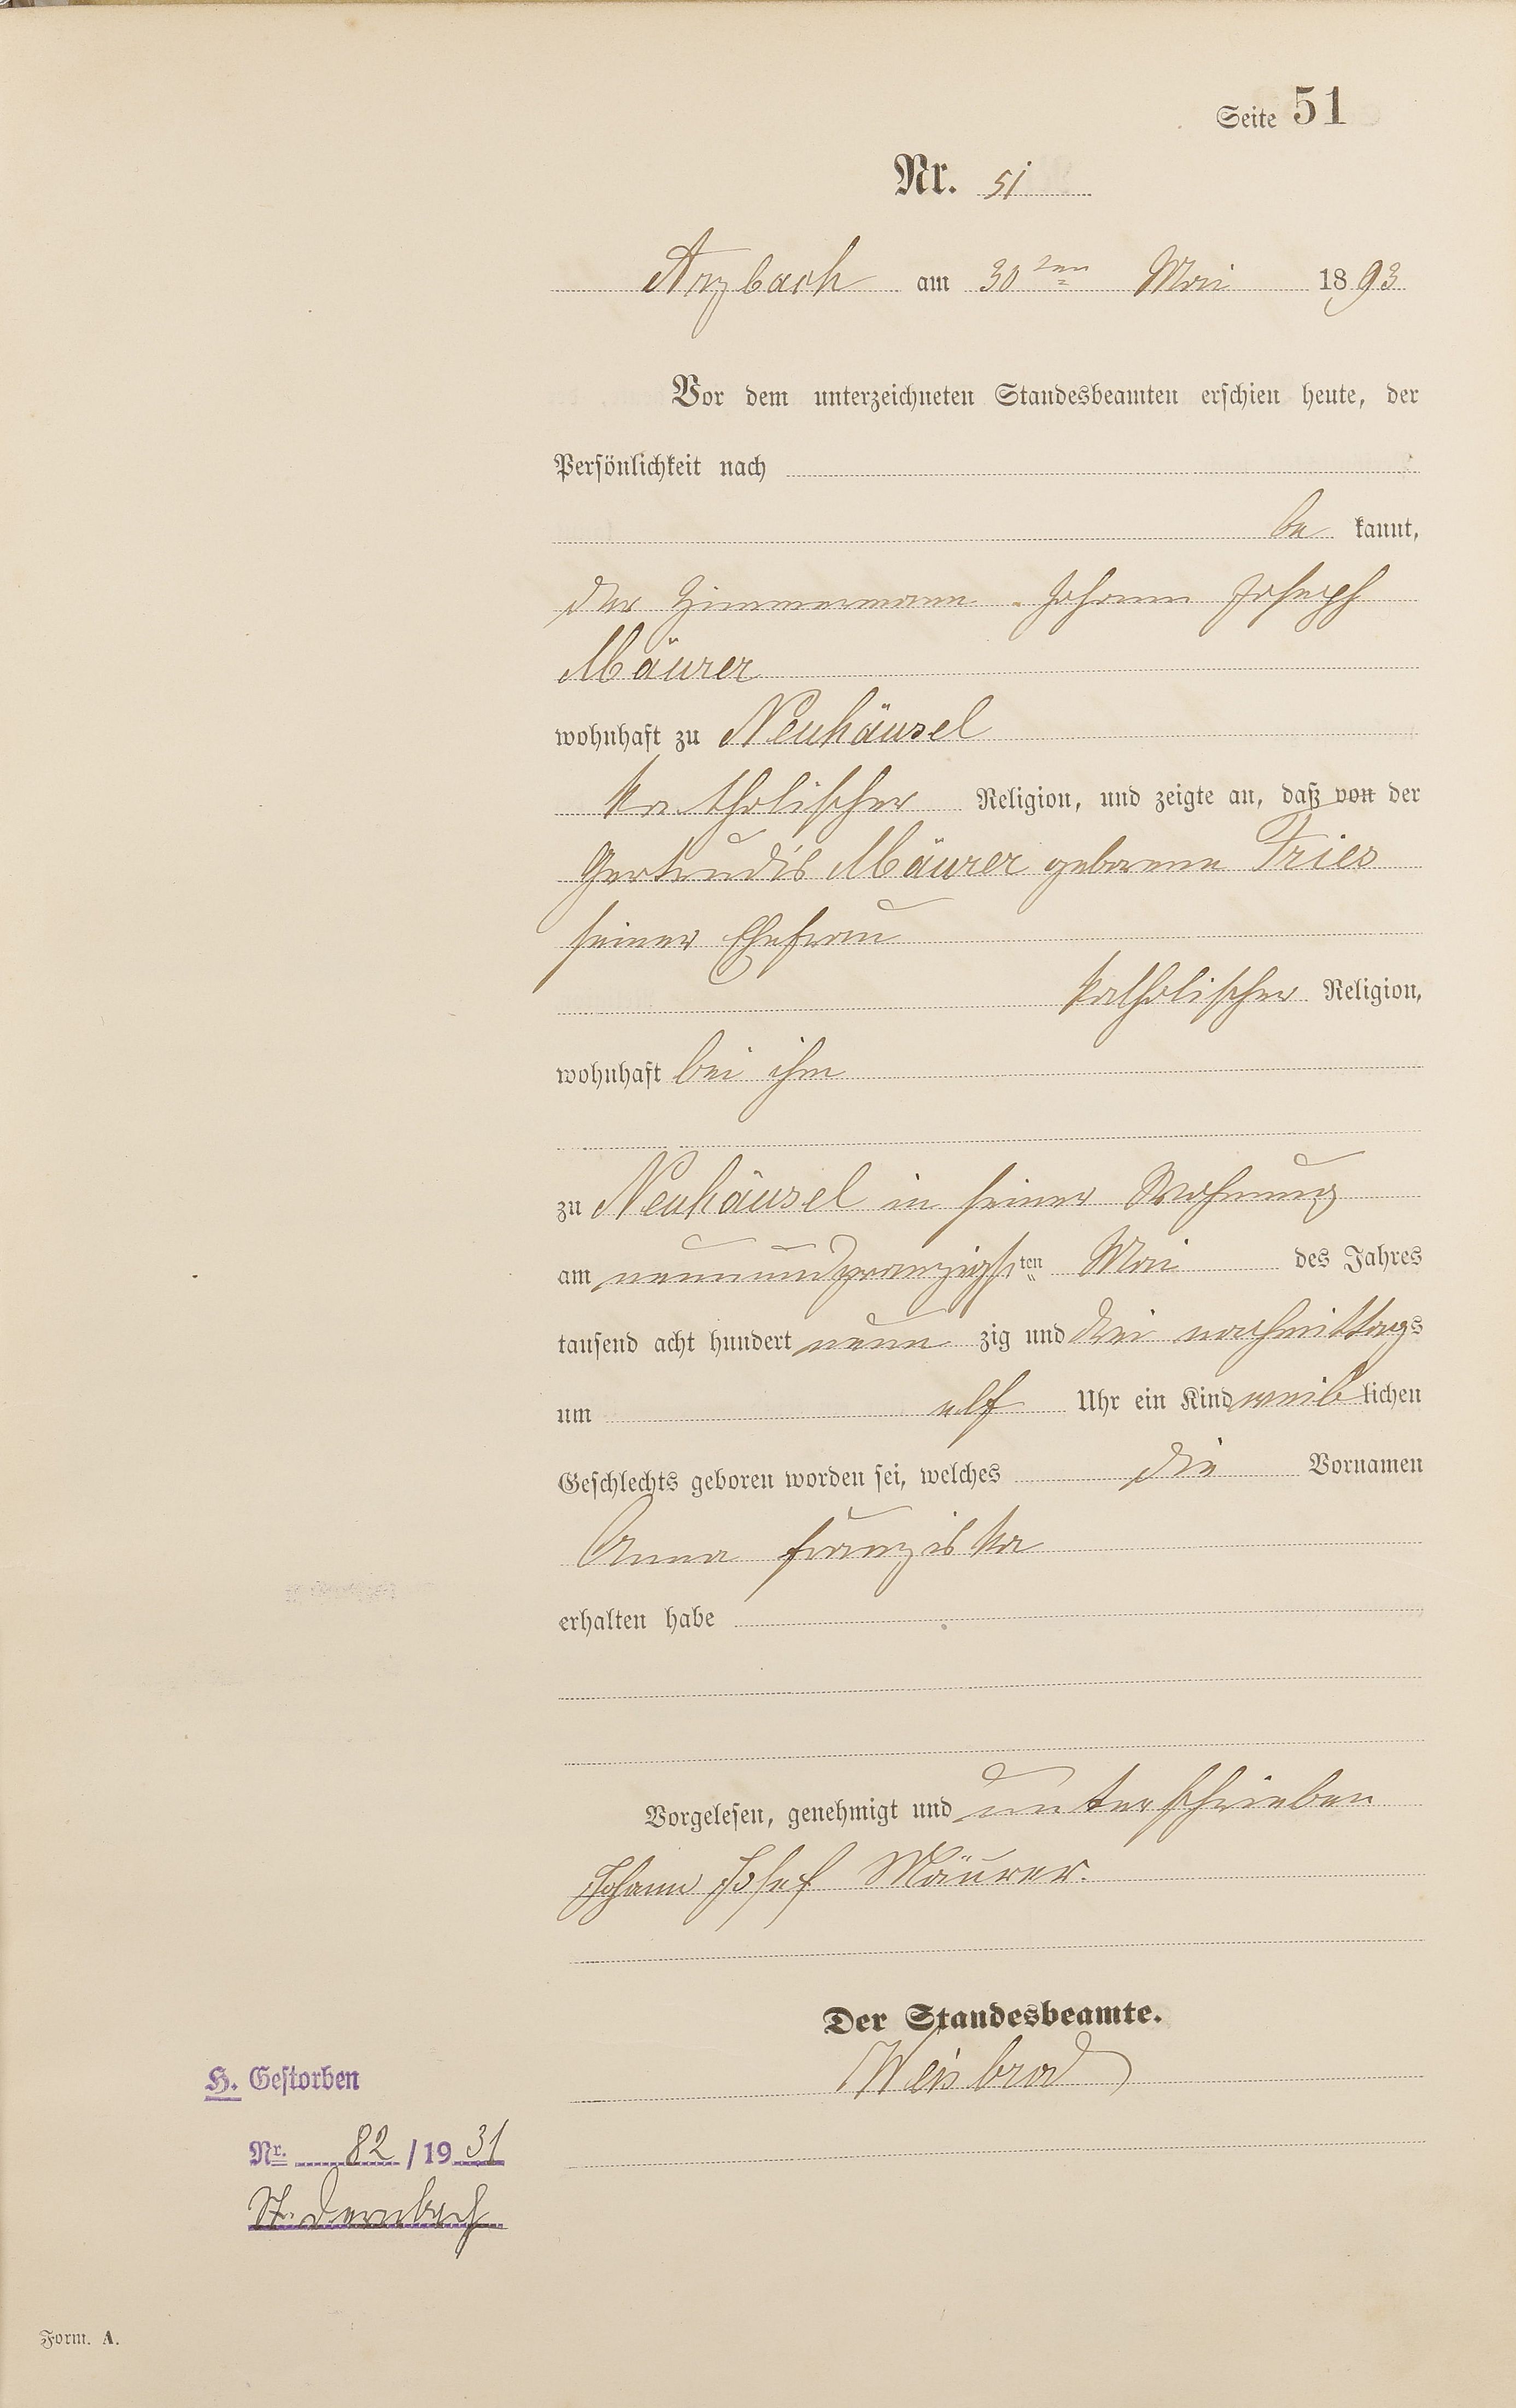 Seite 51
Nr. 51
Arzbach am 30ten Mai 1893
Vor dem unterzeichneten Standesbeamten erschien heute, der
Persönlichkeit nach
be kannt,
der Zimmermann Johann Joseph
Mäurer
wohnhaft zu Neuhäusel
katholischer Religion, und zeigte an, daß von der
Gertrudis Mäurer geborene Fries
seiner Ehefrau
katholischer Religion,
wohnhaft bei ihm
zu Neuhäusel in seiner Wohnung
am neunundzwanzigsten Mai des Jahres
tausend acht hundert neun zig und drei nachmittags
um elf Uhr ein Kind weiblichen
Geschlechts geboren worden sei, welches die Vornamen
Anna Franziska
erhalten habe
Vorgelesen, genehmigt und unterschrieben
Johann Josef Mäurer.
Der Standesbeamte.
Weisbrod
H. Gestorben
Nr. 82 / 1931
St. Dernbach
Form. A.